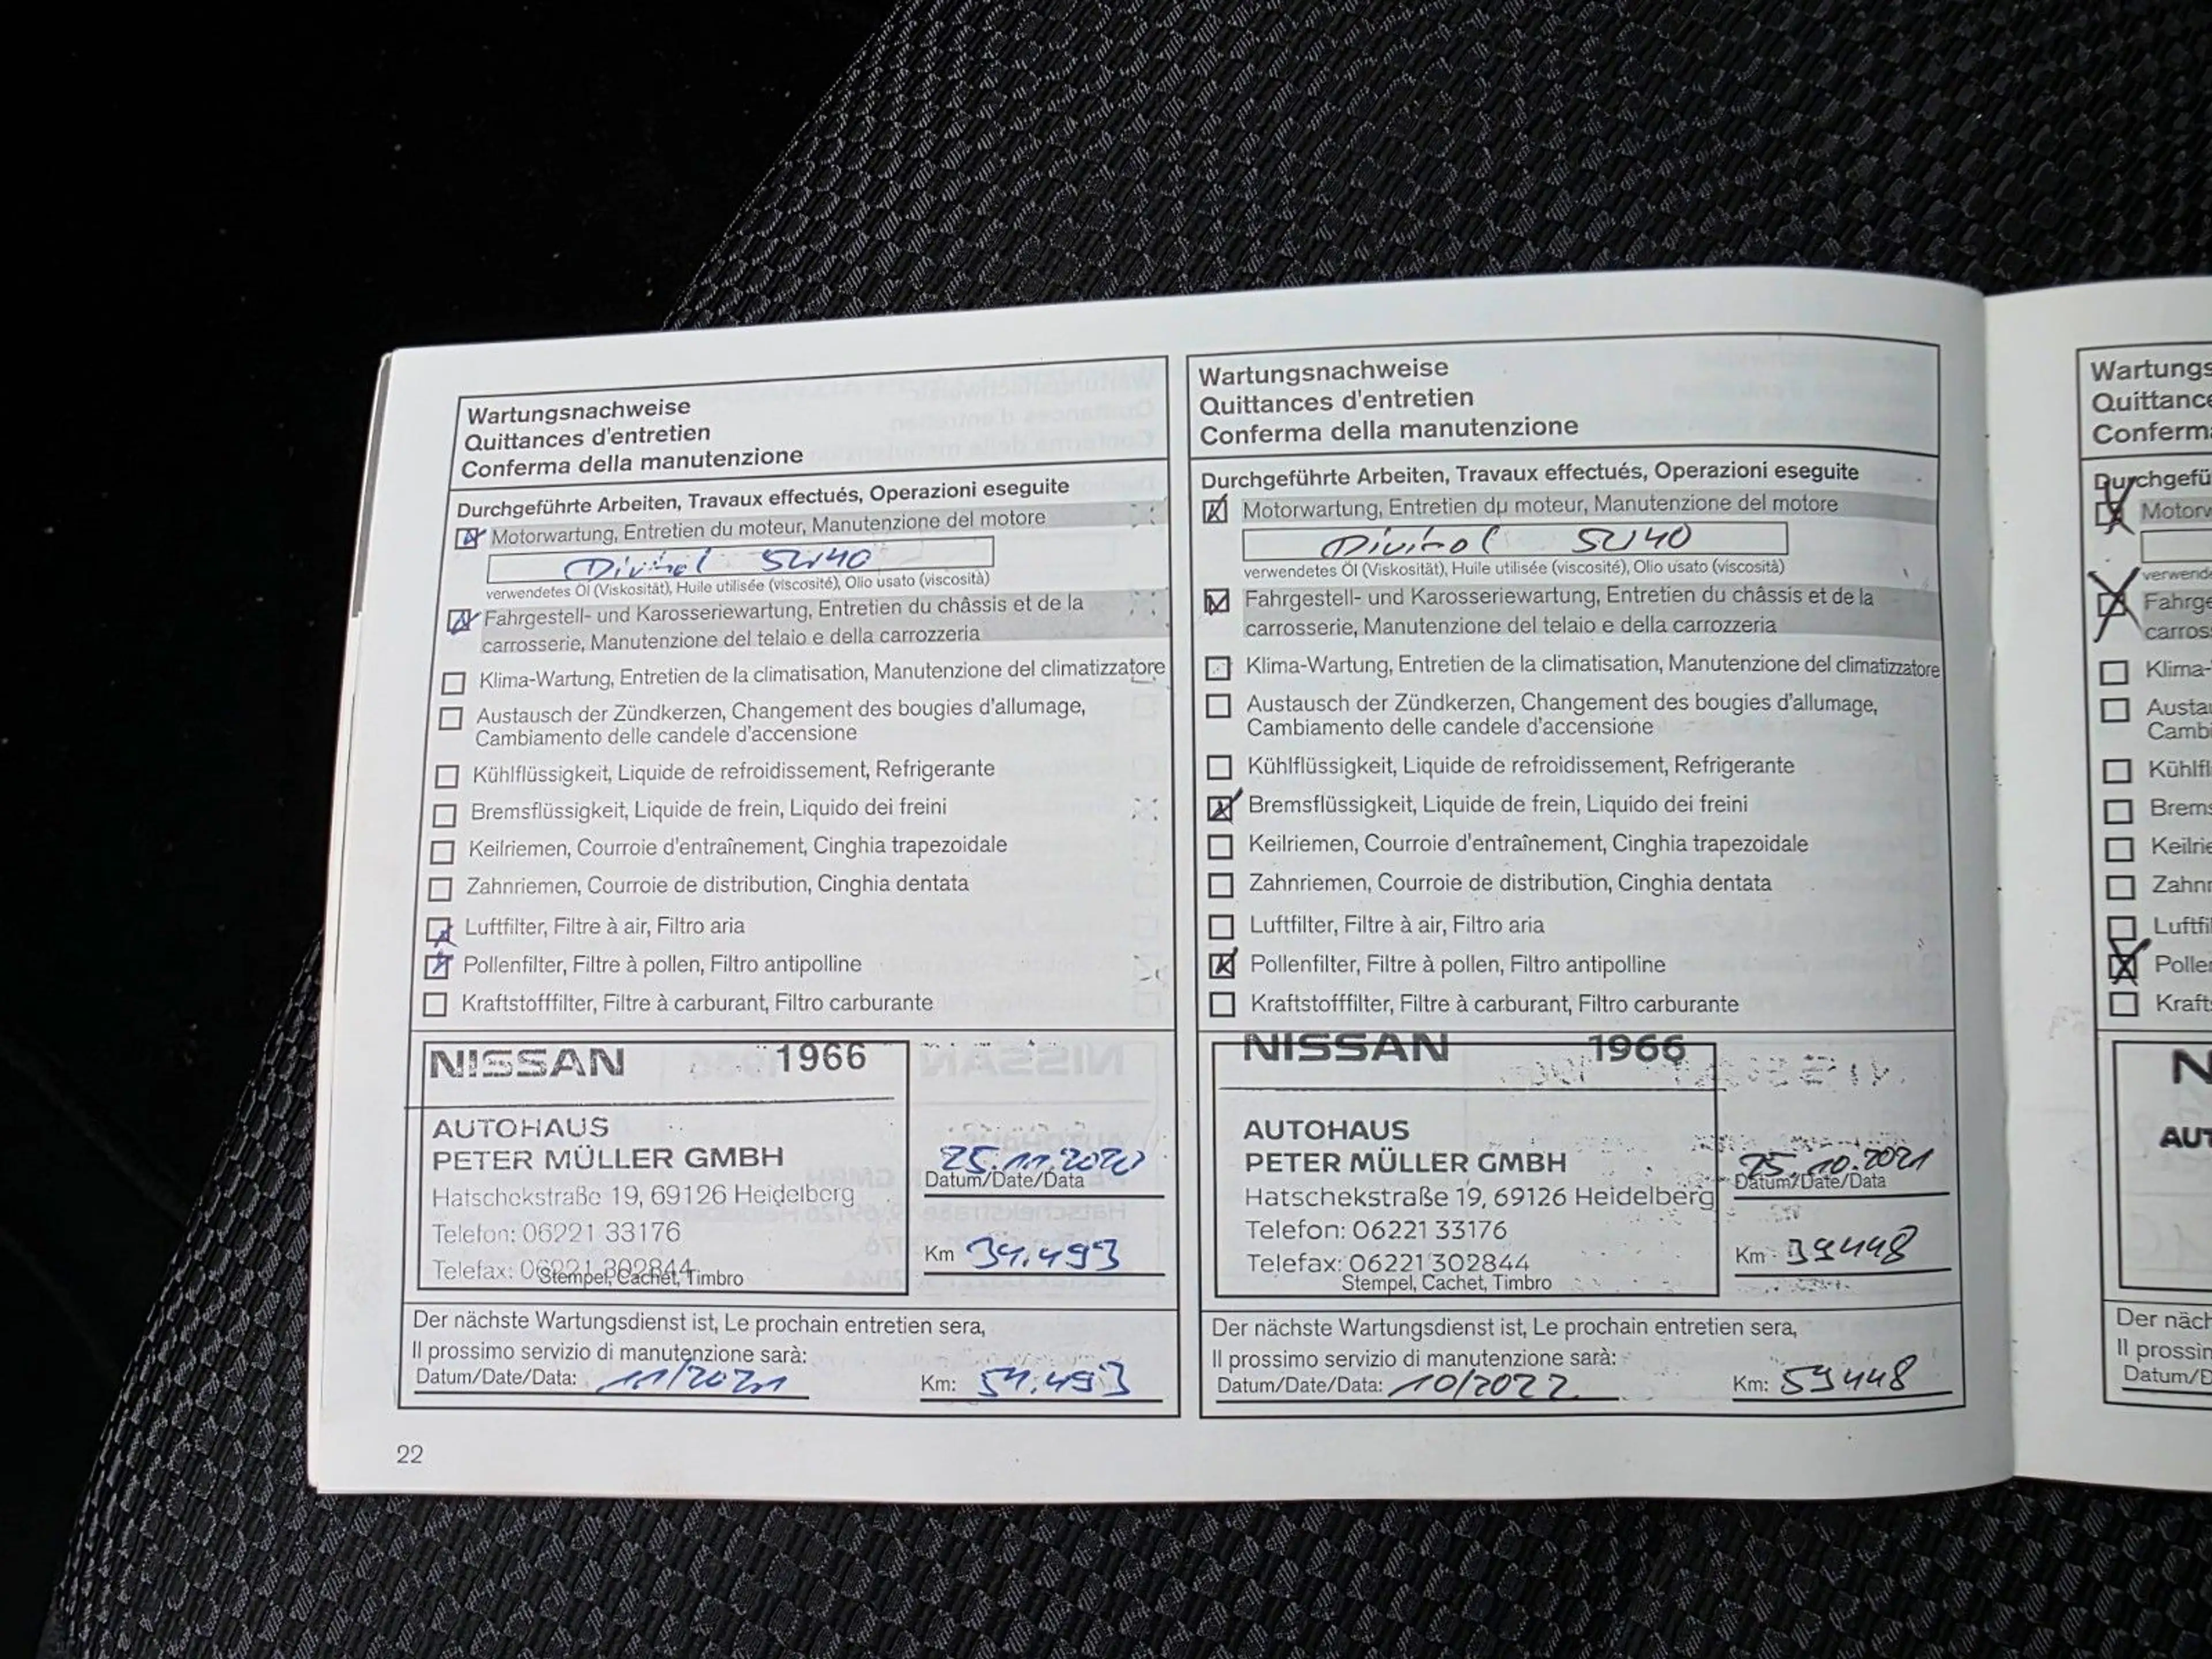 Wartungsnachweise
Quittances d'entretien
Conferma della manutenzione
Durchgeführte Arbeiten, Travaux effectués, Operazioni eseguite
Motorwartung, Entretien du moteur, Manutenzione del motore
Divinol 5W40
verwendetes Öl (Viskosität), Huile utilisée (viscosité), Olio usato (viscosità)
Fahrgestell- und Karosseriewartung, Entretien du châssis et de la
carrosserie, Manutenzione del telaio e della carrozzeria
Klima-Wartung, Entretien de la climatisation, Manutenzione del climatizzatore
Austausch der Zündkerzen, Changement des bougies d'allumage,
Cambiamento delle candele d'accensione
Kühlflüssigkeit, Liquide de refroidissement, Refrigerante
Bremsflüssigkeit, Liquide de frein, Liquido dei freini
Keilriemen, Courroie d'entraînement, Cinghia trapezoidale
Zahnriemen, Courroie de distribution, Cinghia dentata
Luftfilter, Filtre à air, Filtro aria
Pollenfilter, Filtre à pollen, Filtro antipolline
Kraftstofffilter, Filtre à carburant, Filtro carburante
NISSAN 1966
AUTOHAUS
PETER MÜLLER GMBH
Hatschekstraße 19, 69126 Heidelberg
Telefon: 06221 33176
Telefax: 06221 302844
Stempel, Cachet, Timbro
25.11.2020
Datum/Date/Data
Km 34.493
Der nächste Wartungsdienst ist, Le prochain entretien sera,
Il prossimo servizio di manutenzione sarà:
Datum/Date/Data: 11/2021 Km: 54.493
22
Wartungsnachweise
Quittances d'entretien
Conferma della manutenzione
Durchgeführte Arbeiten, Travaux effectués, Operazioni eseguite
Motorwartung, Entretien du moteur, Manutenzione del motore
Divinol 5W40
verwendetes Öl (Viskosität), Huile utilisée (viscosité), Olio usato (viscosità)
Fahrgestell- und Karosseriewartung, Entretien du châssis et de la
carrosserie, Manutenzione del telaio e della carrozzeria
Klima-Wartung, Entretien de la climatisation, Manutenzione del climatizzatore
Austausch der Zündkerzen, Changement des bougies d'allumage,
Cambiamento delle candele d'accensione
Kühlflüssigkeit, Liquide de refroidissement, Refrigerante
Bremsflüssigkeit, Liquide de frein, Liquido dei freini
Keilriemen, Courroie d'entraînement, Cinghia trapezoidale
Zahnriemen, Courroie de distribution, Cinghia dentata
Luftfilter, Filtre à air, Filtro aria
Pollenfilter, Filtre à pollen, Filtro antipolline
Kraftstofffilter, Filtre à carburant, Filtro carburante
NISSAN 1966
AUTOHAUS
PETER MÜLLER GMBH
Hatschekstraße 19, 69126 Heidelberg
Telefon: 06221 33176
Telefax: 06221 302844
Stempel, Cachet, Timbro
25.10.2021
Datum/Date/Data
Km 39448
Der nächste Wartungsdienst ist, Le prochain entretien sera,
Il prossimo servizio di manutenzione sarà:
Datum/Date/Data: 10/2022 Km: 59448
Wartungs
Quittance
Conferma
Durchgefü
Motorw
verwende
Fahrge
carros
Klima-
Austau
Cambi
Kühlfl
Brems
Keilrie
Zahnr
Luftfil
Poller
Krafts
N
AUT
Der näch
Il prossin
Datum/D